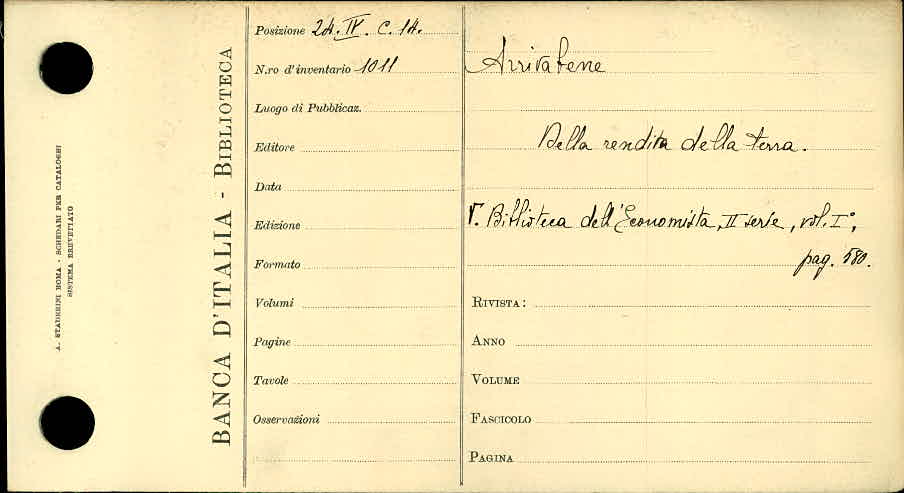 A. STADERINI ROMA - SCHEDARI PER CATALOGHI
SISTEMA BREVETTATO
BANCA D'ITALIA - BIBLIOTECA
Posizione 24. IV. C. 14.
N.ro d'inventario 1011
Luogo di Pubblicaz.
Editore
Data
Edizione
Formato
Volumi
Pagine
Tavole
Osservazioni
Arrivabene
Della rendita della terra.
V. Biblioteca dell'Economista, II serie, vol. I°,
pag. 580.
RIVISTA:
ANNO
VOLUME
FASCICOLO
PAGINA